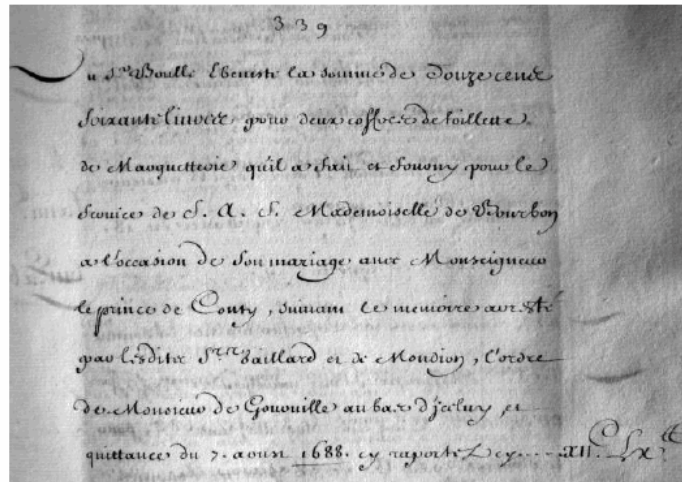 339
u Sr Boulle Ebeniste la somme de Douze cens
soixante livres pour deux coffres de toillette
de Marquetterie qu'il a fait et fourny pour le
service de S. A. S. Mademoiselle de Bourbon
a l'occasion de son mariage avec Monseigneur
le prince de Conty, suivant le memoire aresté
par lesdites Srs Vaillard et de Moudion, l'ordre
de Monsieur de Gourville au bas d'jceluy, et
quittance du 7. aoust 1688. cy raporté cy.... XIIC LX lt